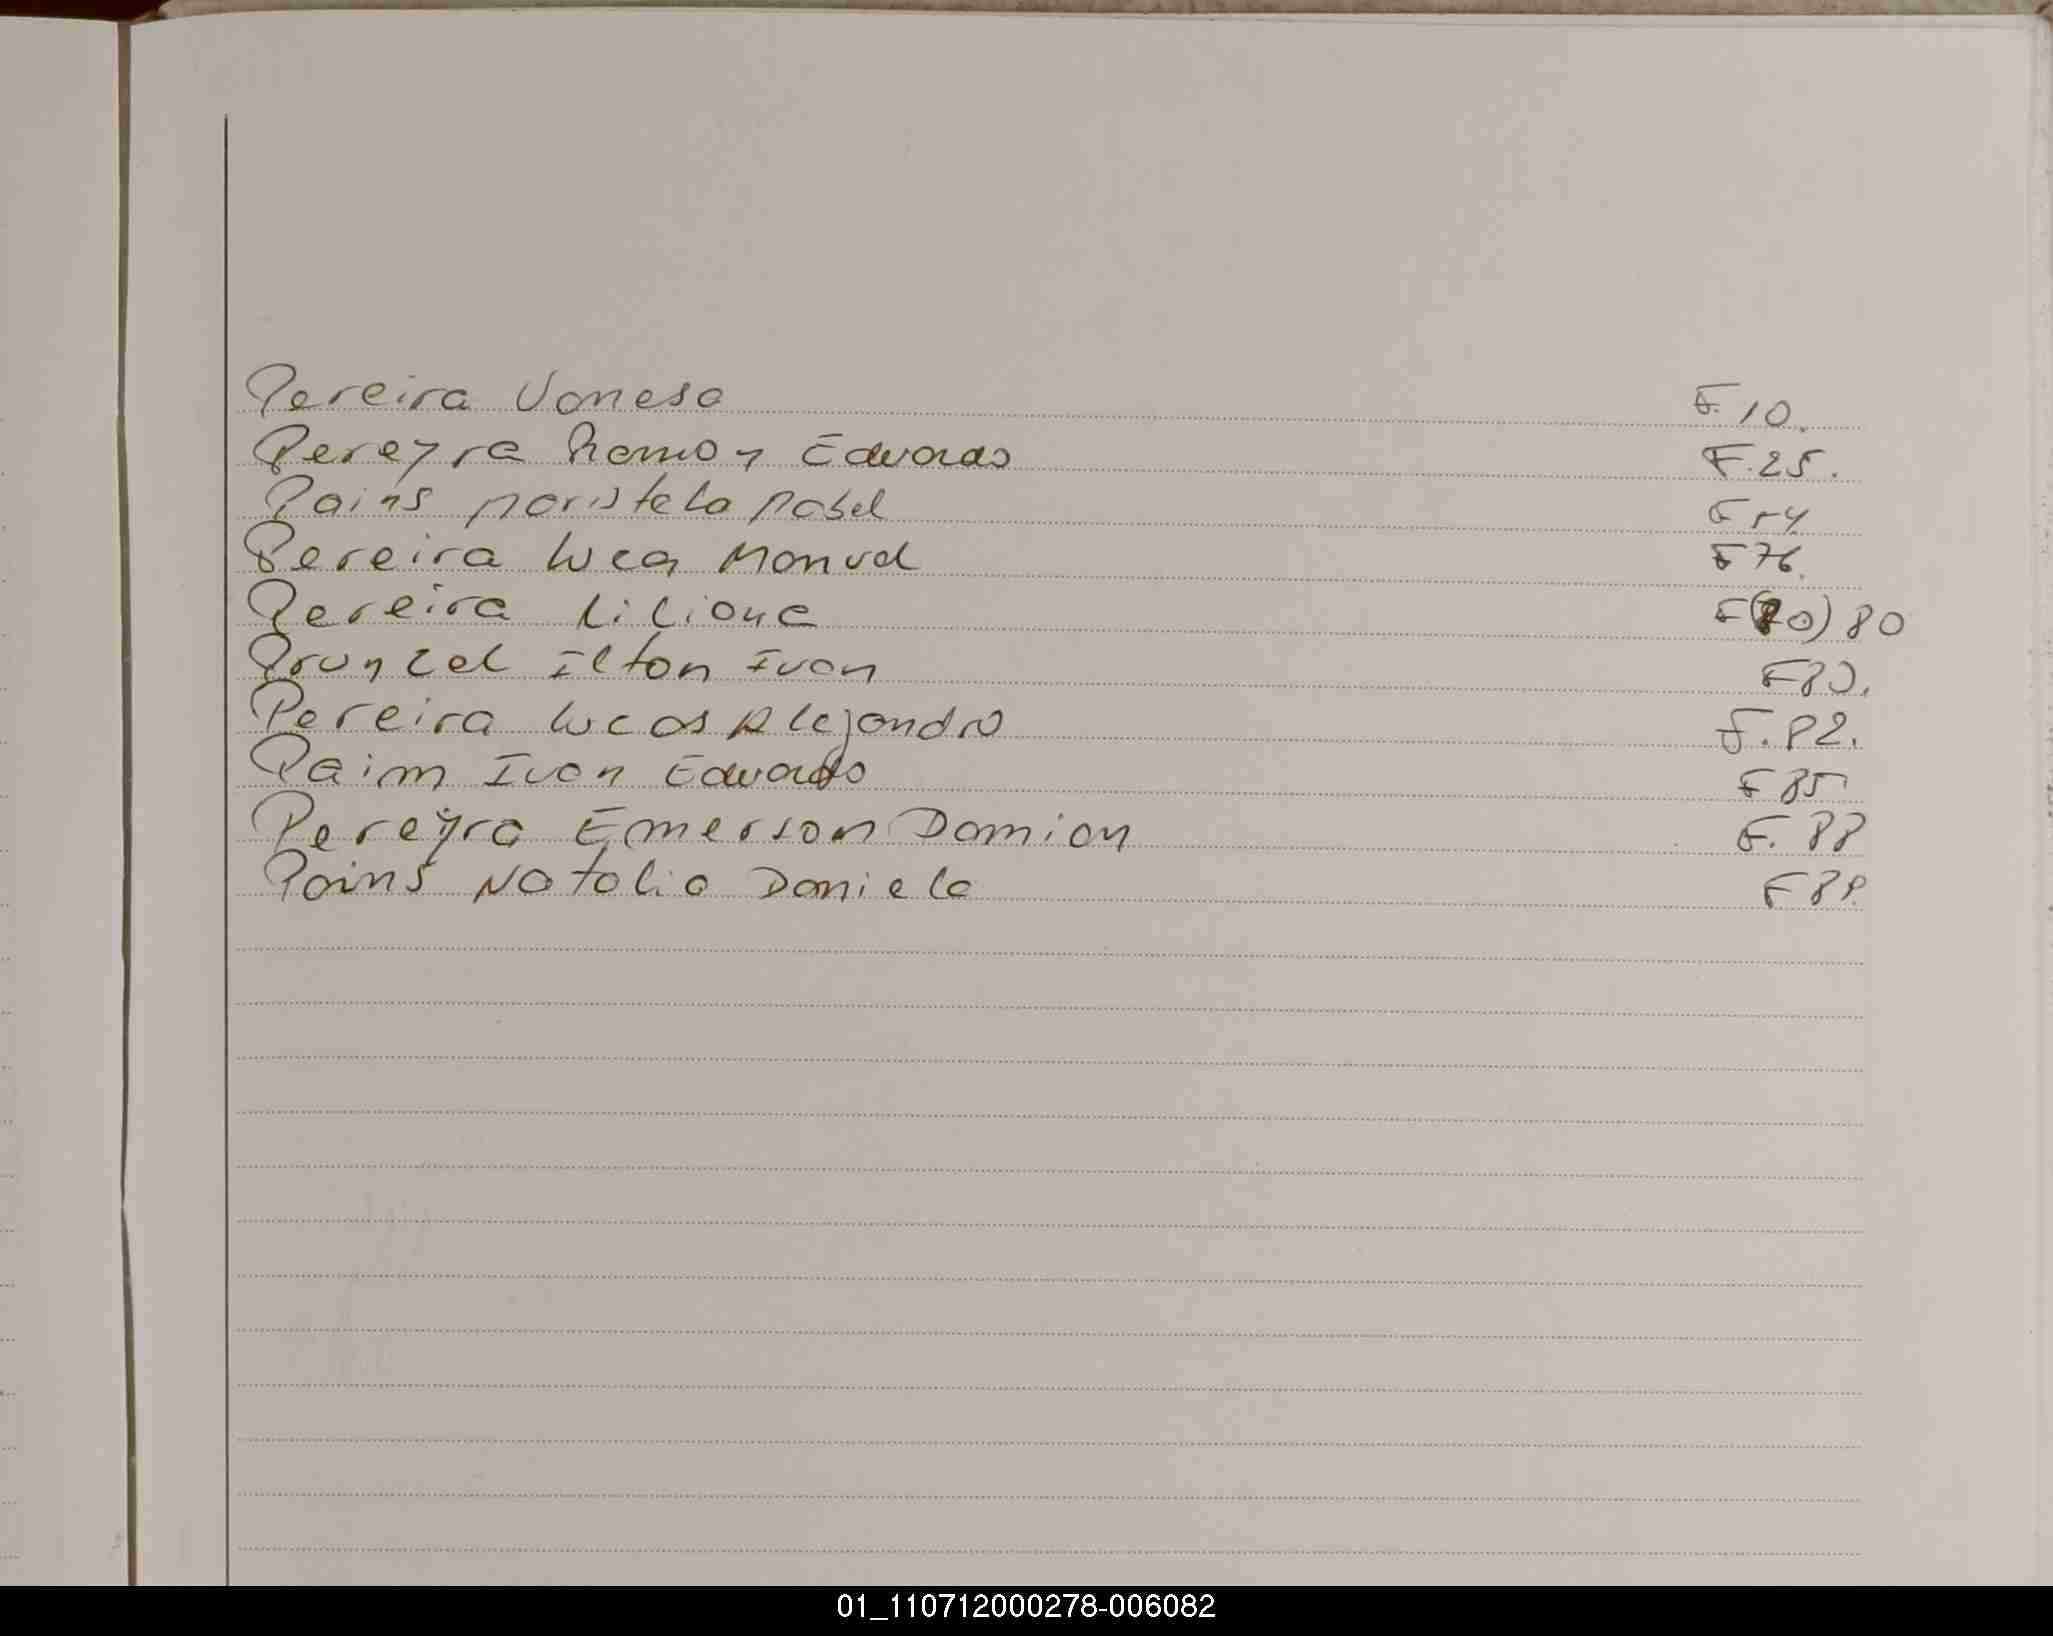 Pereira Vanesa F. 10.
Pereyra Ramon Eduardo F. 25.
Pains Maristela Mabel F 54
Pereira Luca Manuel F 76.
Pereira Liliana F(70) 80
Prunzel Ilton Ivan F80.
Pereira Lucas Alejandro F. 82.
Paim Ivan Eduardo F 85
Pereyra Emerson Damian F. 88
Pains Natalia Daniela F 89.
01_110712000278-006082